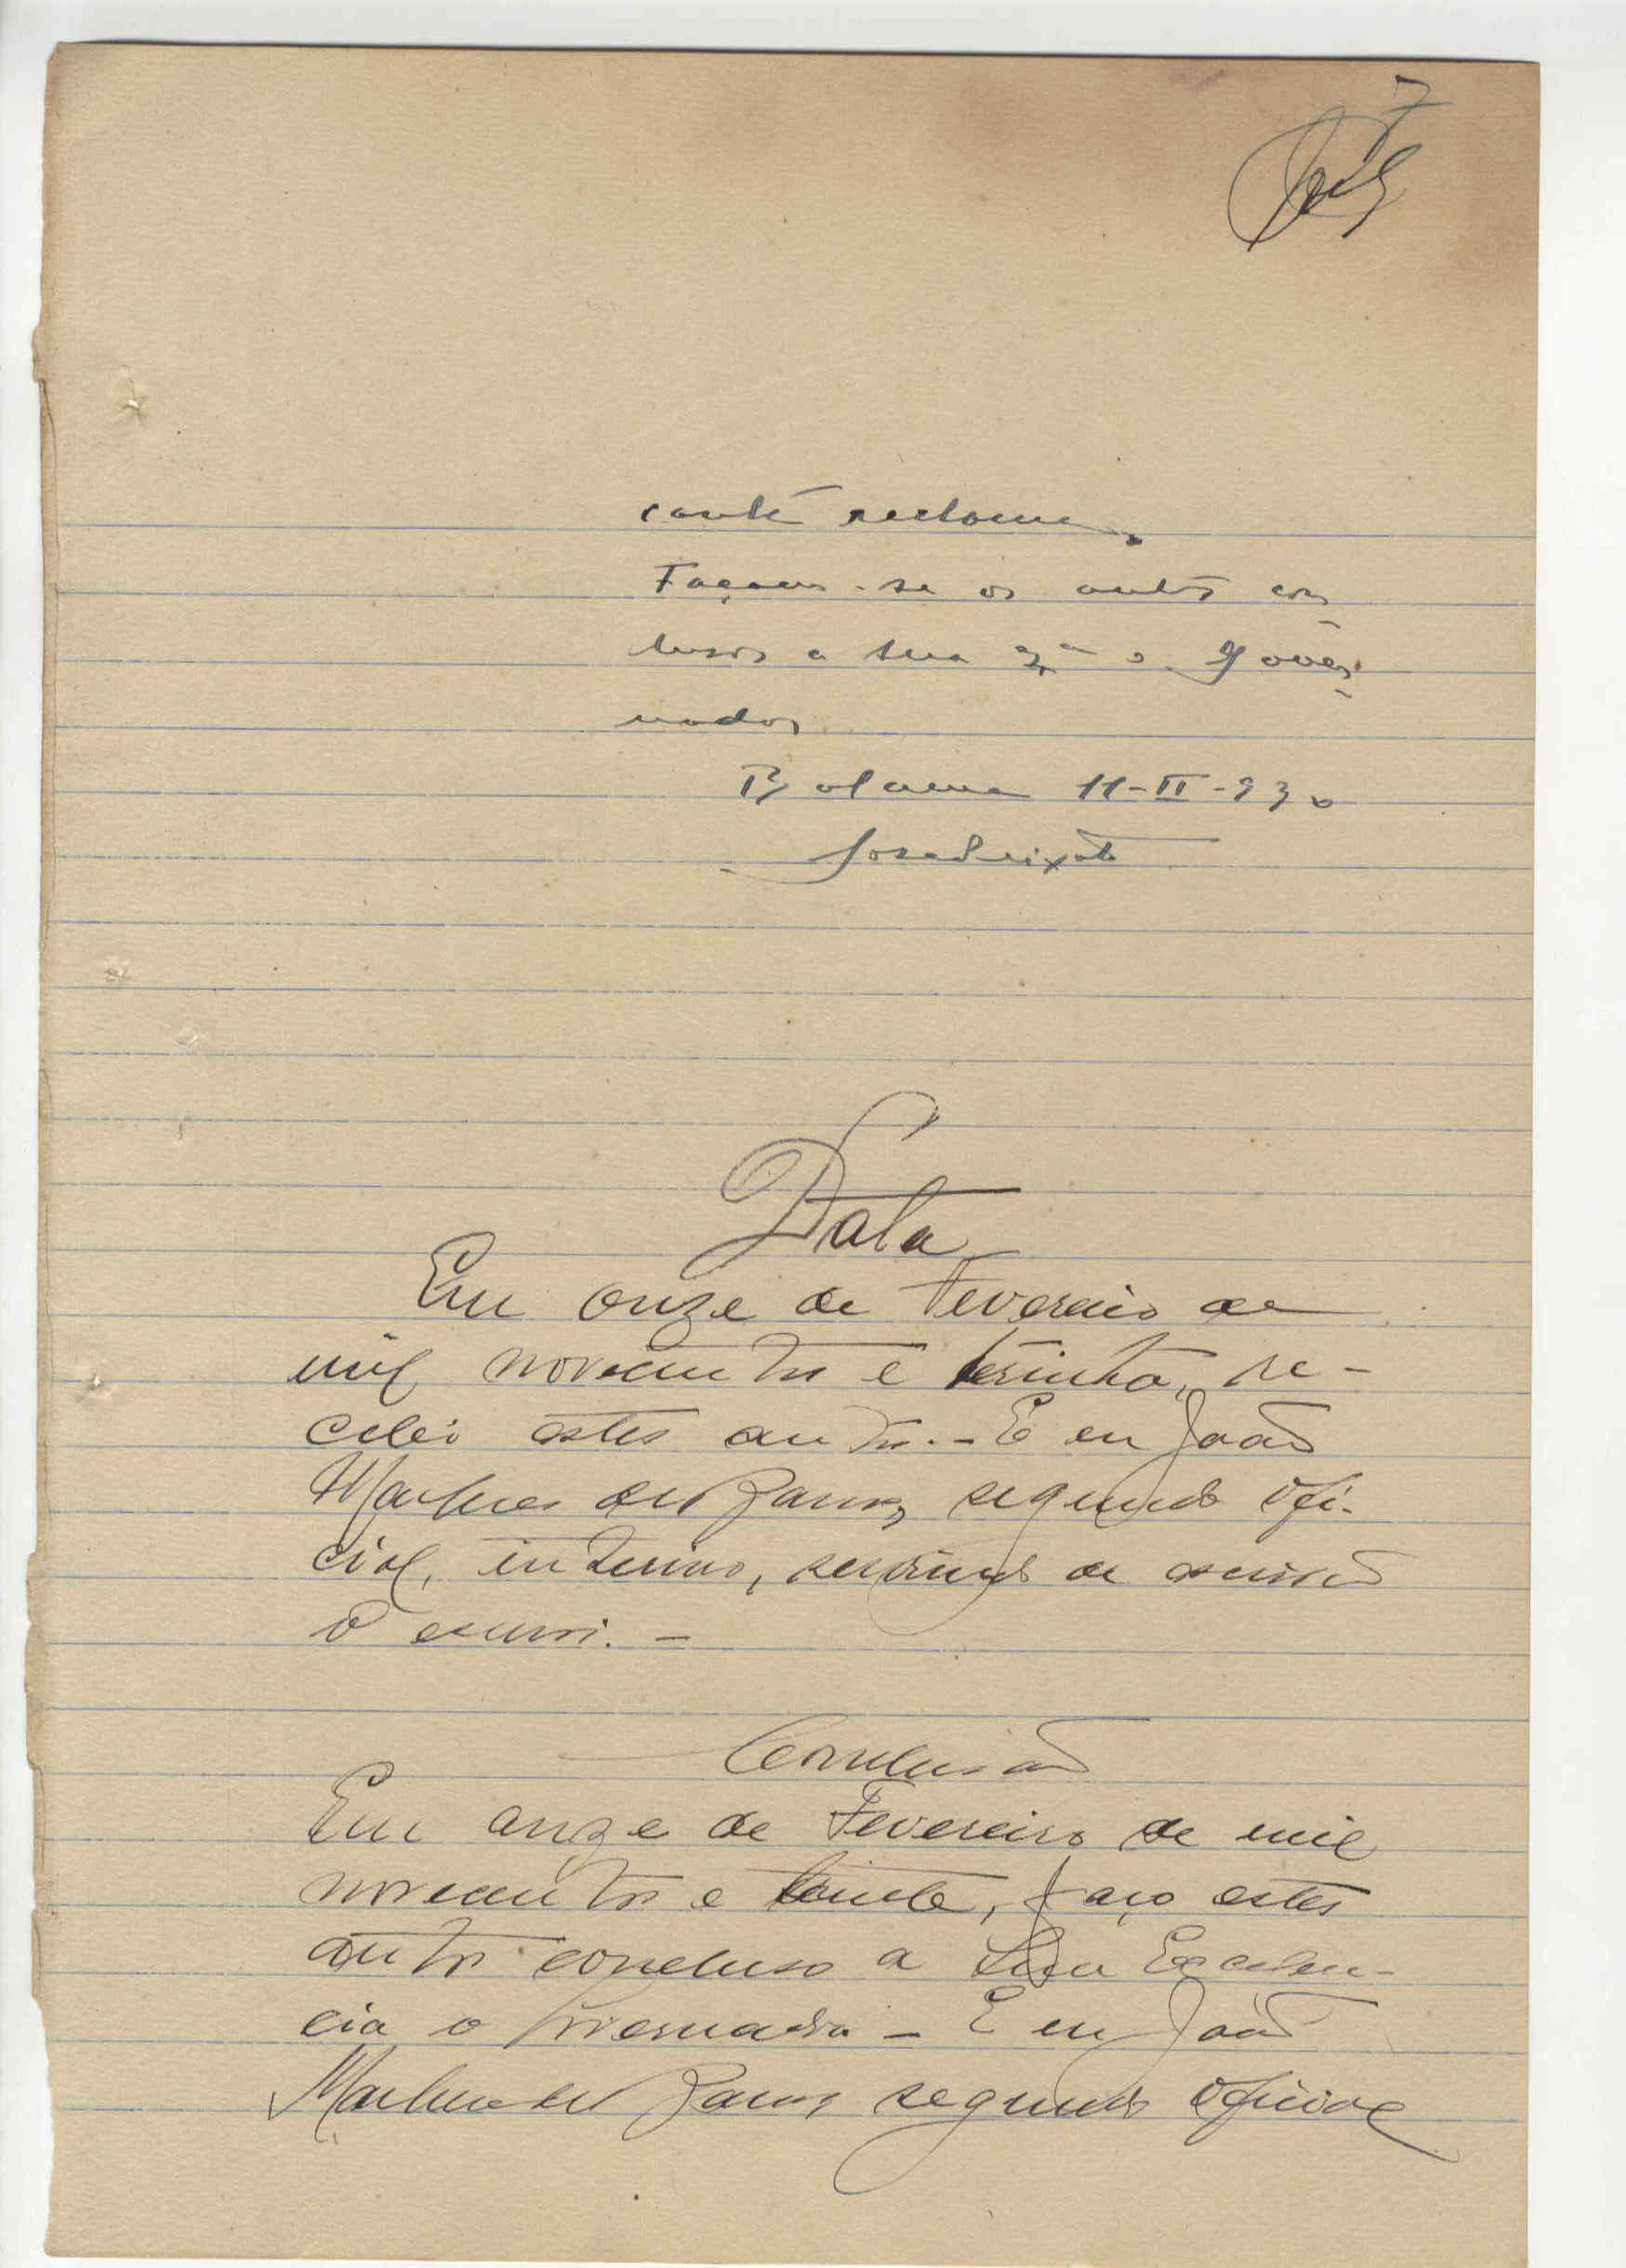 7
Façam-se os autos con
clusos a sua exª o Gover
nador
Bolama 11-II-930
José Peixoto
Data
Em onze de Fevereiro de
mil novecentos e trinta, re-
cebi estes autos.- E eu João
segundo ofi-
cial, interino, servindo de escrivão
o escrevi. -
Conclusão
Em onze de Fevereiro de mil
novecentos e trinta, faço estes
autos concluso a Sua Excelen-
cia o Governador - E eu João
segundo oficial